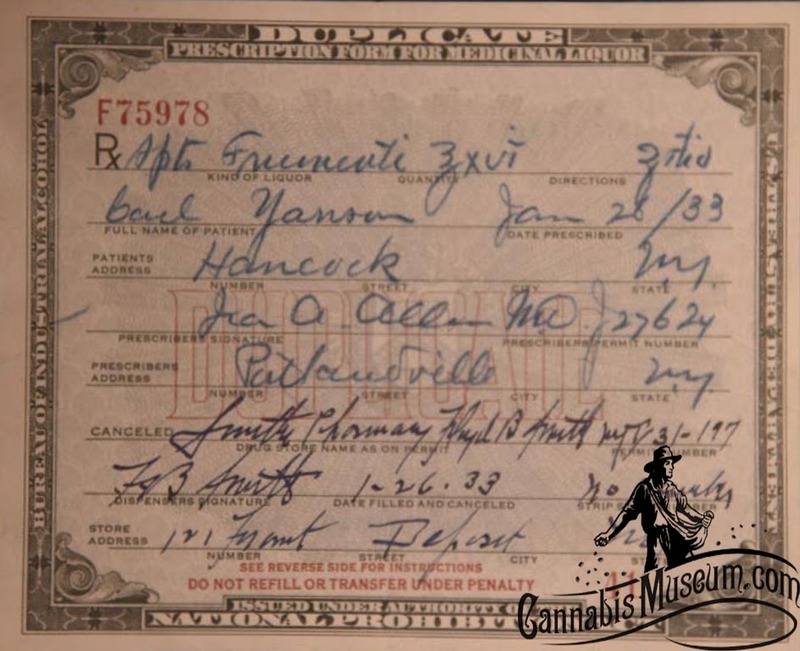 DUPLICATE
PRESCRIPTION FORM FOR MEDICINAL LIQUOR
F75978
Rx Spts Frumenti ℥xvi ℥ tid
KIND OF LIQUOR QUANTITY DIRECTIONS
Carl Yanson Jan 26/33
FULL NAME OF PATIENT DATE PRESCRIBED
PATIENTS ADDRESS Hancock N.Y.
NUMBER STREET CITY STATE
Ira A. Allen MD J27624
PRESCRIBERS SIGNATURE PRESCRIBERS PERMIT NUMBER
PRESCRIBERS ADDRESS Portlandville N.Y.
NUMBER STREET CITY STATE
DUPLICATE
CANCELED Smiths Pharmacy Floyd B Smith 31-197
DRUG STORE NAME AS ON PERMIT PERMIT NUMBER
F B Smith 1-26-33 No
DISPENSERS SIGNATURE DATE FILLED AND CANCELED STRIP
STORE ADDRESS 121 Front Deposit
NUMBER STREET CITY
SEE REVERSE SIDE FOR INSTRUCTIONS
DO NOT REFILL OR TRANSFER UNDER PENALTY
ISSUED UNDER AUTHORITY OF
NATIONAL PROHIBITION
BUREAU OF INDUSTRIAL ALCOHOL
U.S. TREASURY DEPARTMENT
CannabisMuseum.com